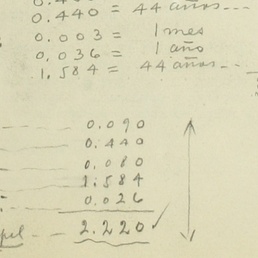 0.440 = 44 años...
0.003 = 1 mes
0.036 = 1 año
1.584 = 44 años...
0.090
0.440
0.080
1.584
0.026
2.220